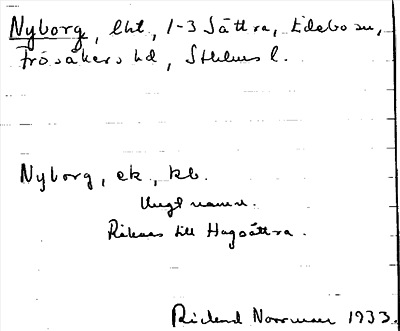 Nyborg, lht, 1-3 Sättra, Edebo sn,
Frösåkers hd, Sthlms l.
Nyborg, ek, kb.
Ungt namn.
Räknas till Hagsättra.
Rickard Norrman 1933.